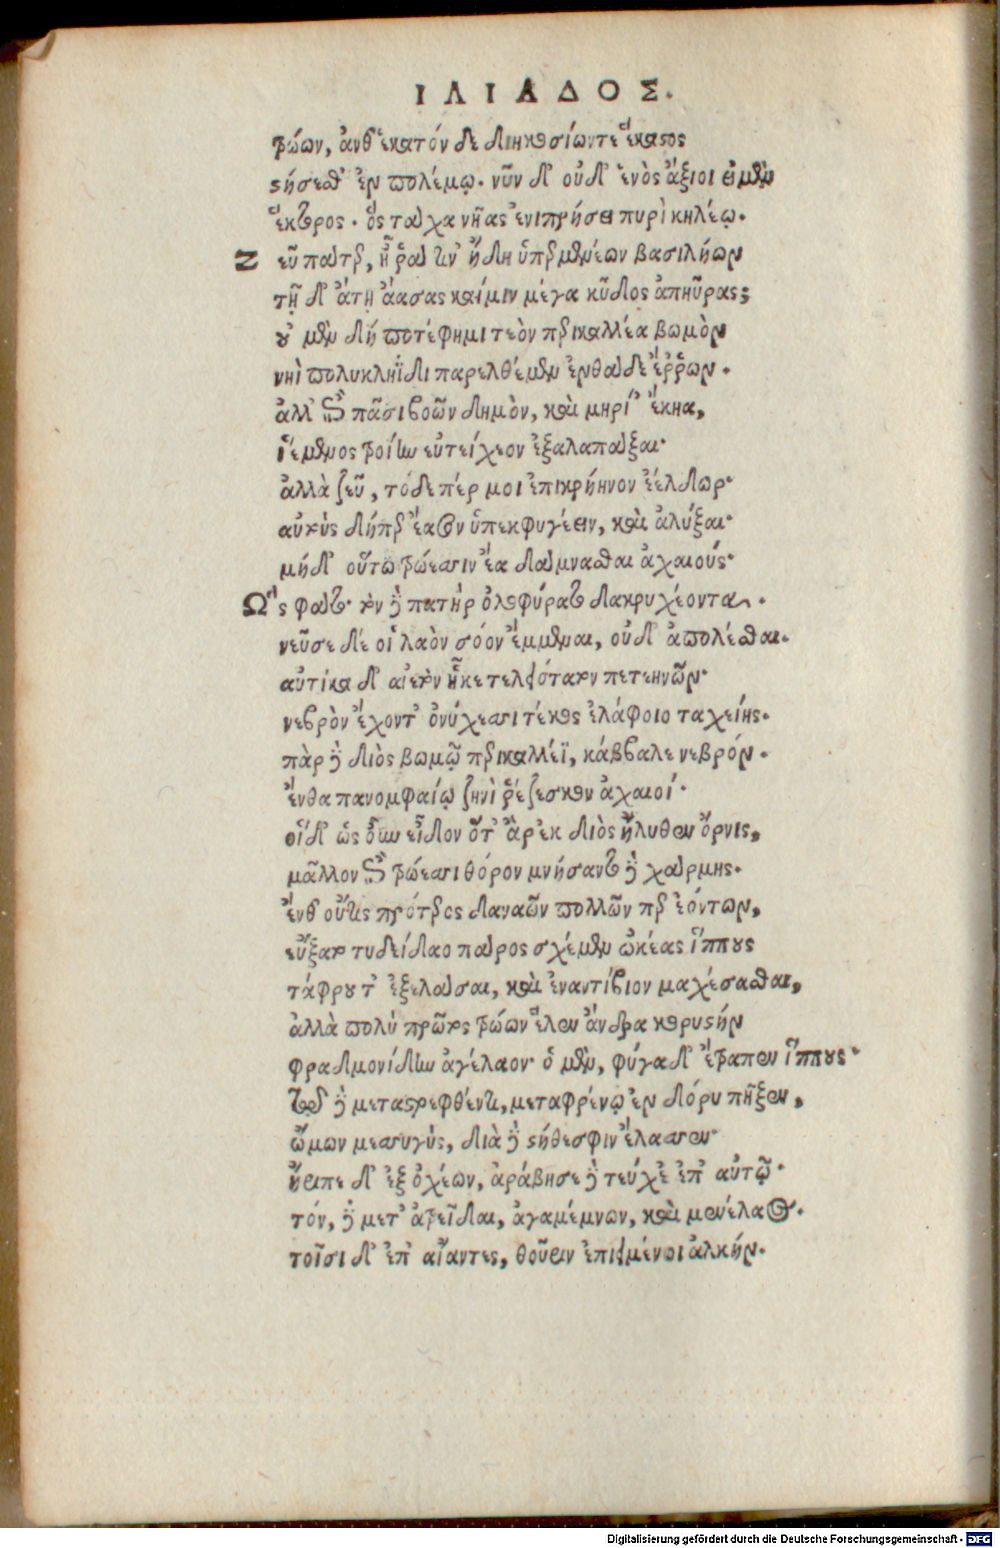 ΙΛΙΑΔΟΣ.
τρώων, ἀνθ' ἑκατόν δε διηκοσίωντε ἕκαστος
στήσεσθ' ἐν πολέμῳ. νῦν δ' οὐδ' ἑνὸς ἄξιοι εἰμὲν
ἕκτορος. ὃς τάχα νῆας ἐνιπρήσει πυρὶ κηλέῳ.
Ζεῦ πάτερ, ἦ ῥά τιν' ἤδη ὑπερμενέων βασιλήων
τῇ δ' ἄτῃ ἄασας καίμιν μέγα κῦδος ἀπηῦρας;
οὐ μὲν δή ποτέ φημι τεὸν περικαλλέα βωμὸν
νηὶ πολυκλήϊδι παρελθέμεν ἐνθάδε ἔῤῥων.
ἀλλ' ἐπὶ πᾶσι βοῶν δημὸν, καὶ μηρί' ἔκηα,
ἱέμενος τροίην εὐτείχεον ἐξαλαπάξαι·
ἀλλὰ ζεῦ, τόδε πέρ μοι ἐπικρήηνον ἐέλδωρ·
αὐτοὺς δήπερ ἔασον ὑπεκφυγέειν, καὶ ἀλύξαι·
μήδ' οὕτω τρώεσσιν ἔα δάμνασθαι ἀχαιούς·
Ὣς φάτο· τὸν δὲ πατὴρ ὀλοφύρατο δακρυχέοντα.
νεῦσε δέ οἱ λαὸν σόον ἔμμεναι, οὐδ' ἀπολέσθαι.
αὐτίκα δ' αἰετὸν ἧκε τελειότατον πετεηνῶν·
νεβρὸν ἔχοντ' ὀνύχεσσι τέκος ἐλάφοιο ταχείης.
πὰρ δὲ διὸς βωμῷ περικαλλέϊ, κάββαλε νεβρόν.
ἔνθα πανομφαίῳ ζηνὶ ῥέζεσκον ἀχαιοί·
οἵ δ' ὡς οὖν εἶδον ὅτ' ἄρ' ἐκ διὸς ἤλυθεν ὄρνις,
μᾶλλον ἐπὶ τρώεσσι θόρον μνήσαντο δὲ χάρμης.
ἔνθ' οὔτις πρότερος δαναῶν πολλῶν περ ἐόντων,
εὔξατο τυδείδαο πάρος σχέμεν ὠκέας ἵππους
τάφρου τ' ἐξελάσαι, καὶ ἐναντίβιον μαχέσασθαι,
ἀλλὰ πολὺ πρῶτος τρώων ἕλεν ἄνδρα κορυστήν
φραδμονίδην ἀγέλαον· ὁ μὲν, φύγαδ' ἔτραπεν ἵππους·
τῷ δὲ μεταστρεφθέντι, μεταφρένῳ ἐν δόρυ πῆξεν,
ὤμων μεσσυγὺς, διὰ δὲ στήθεσφιν ἔλασσεν·
ἤειπε δ' ἐξ ὀχέων, ἀράβησε δὲ τεύχε' ἐπ' αὐτῷ·
τόν, δὲ μετ' ἀτρεῖδαι, ἀγαμέμνων, καὶ μενέλαος.
τοῖσι δ' ἐπ' αἴαντες, θοῦριν ἐπιειμένοι ἀλκήν.
Digitalisierung gefördert durch die Deutsche Forschungsgemeinschaft - DFG